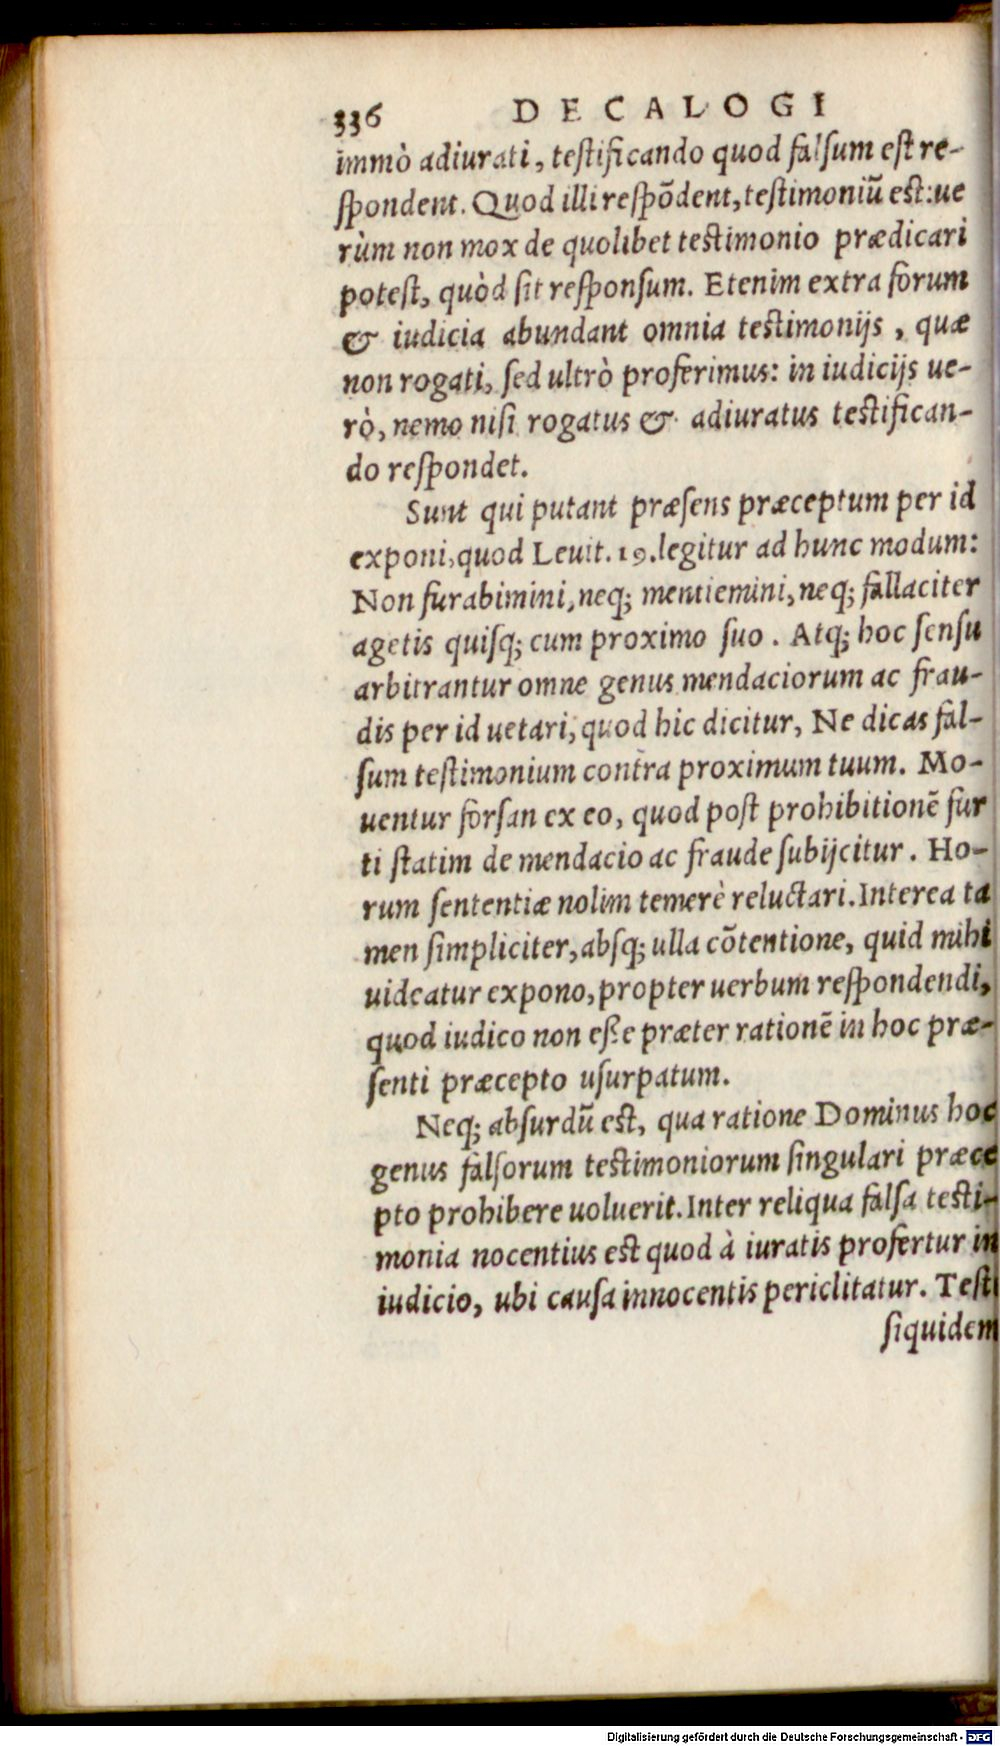 336 DECALOGI
immò adiurati, testificando quod falsum est re-
spondent. Quod illi respõdent, testimoniũ est: ue
rùm non mox de quolibet testimonio prædicari
potest, quòd sit responsum. Etenim extra forum
& iudicia abundant omnia testimonijs, quæ
non rogati, sed ultrò proferimus: in iudicijs ue-
rò, nemo nisi rogatus & adiuratus testifican-
do respondet.
Sunt qui putant præsens præceptum per id
exponi, quod Leuit. 19. legitur ad hunc modum:
Non furabimini, neq; mentiemini, neq; fallaciter
agetis quisq; cum proximo suo. Atq; hoc sensu
arbitrantur omne genus mendaciorum ac frau-
dis per id uetari, quod hic dicitur, Ne dicas fal-
sum testimonium contra proximum tuum. Mo-
uentur forsan ex eo, quod post prohibitionẽ fur
ti statim de mendacio ac fraude subijcitur. Ho-
rum sententiæ nolim temerè reluctari. Interea ta
men simpliciter, absq; ulla cõtentione, quid mihi
uideatur expono, propter uerbum respondendi,
quod iudico non esse præter rationẽ in hoc præ-
senti præcepto usurpatum.
Neq; absurdũ est, qua ratione Dominus hoc
genus falsorum testimoniorum singulari præce
pto prohibere uoluerit. Inter reliqua falsa testi-
monia nocentius est quod à iuratis profertur in
iudicio, ubi causa innocentis periclitatur. Testi
siquidem
Digitalisierung gefördert durch die Deutsche Forschungsgemeinschaft - DFG